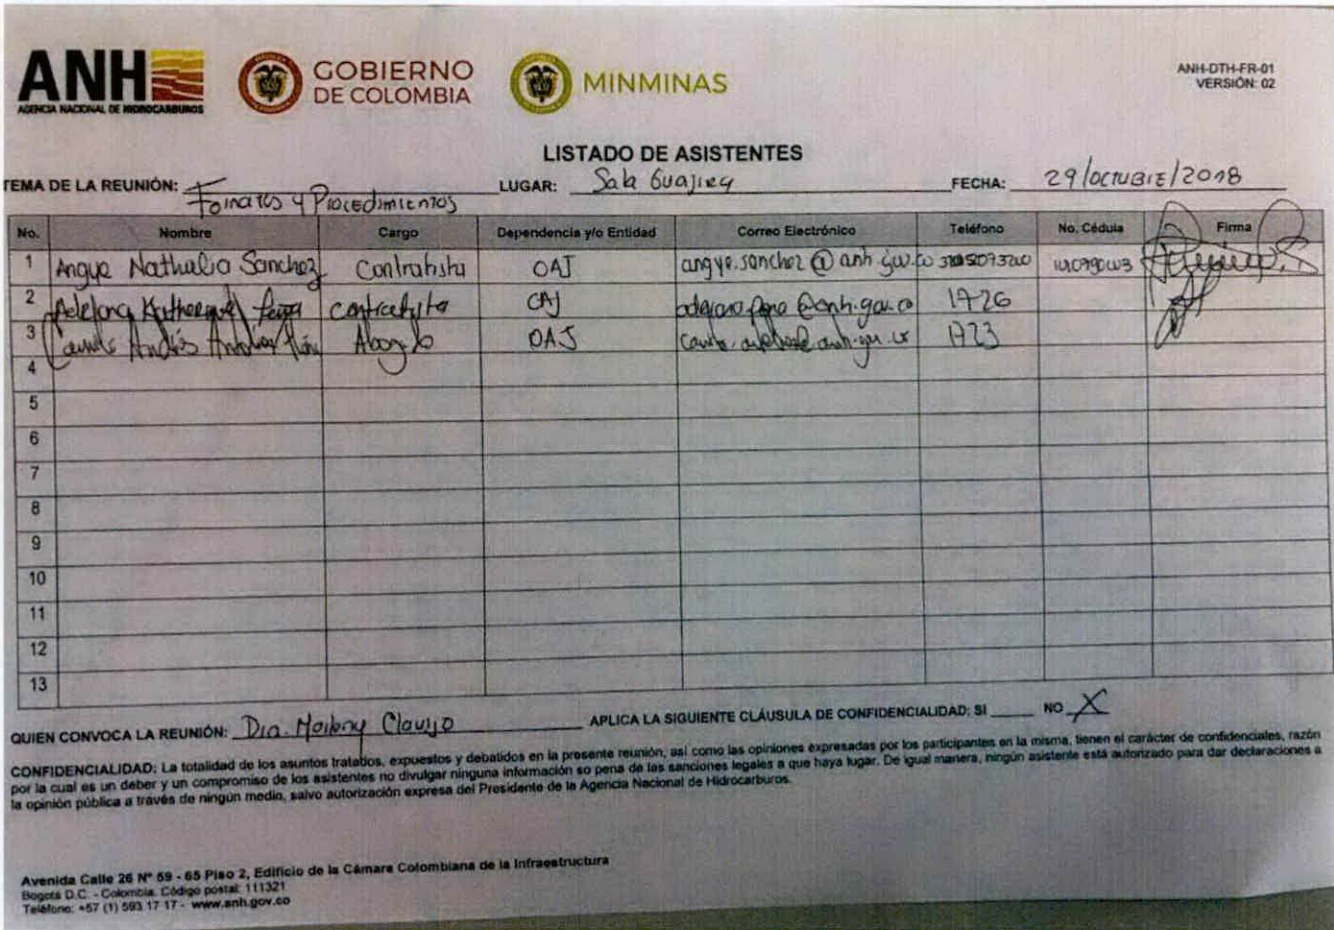 ANH
AGENCIA NACIONAL DE HIDROCARBUROS
GOBIERNO
DE COLOMBIA
MINMINAS
ANH-DTH-FR-01
VERSIÓN: 02
LISTADO DE ASISTENTES
TEMA DE LA REUNIÓN: Formatos y Procedimientos LUGAR: Sala Guajira FECHA: 29/OCTUBRE/2018
No. Nombre Cargo Dependencia y/o Entidad Correo Electrónico Teléfono No. Cédula Firma
1 Angye Nathalia Sanchez Contratista OAJ angye.sanchez@anh.gov.co
2 contratista OAJ 1726
3 Andrés Abogado OAJ 1723
4
5
6
7
8
9
10
11
12
13
QUIEN CONVOCA LA REUNIÓN: Dra. Clavijo APLICA LA SIGUIENTE CLÁUSULA DE CONFIDENCIALIDAD: SI ____ NO X
CONFIDENCIALIDAD: La totalidad de los asuntos tratabos, expuestos y debatidos en la presente reunión, así como las opiniones expresadas por los participantes en la misma, tienen el carácter de confidenciales, razón
por la cual es un deber y un compromiso de los asistentes no divulgar ninguna información so pena de las sanciones legales a que haya lugar. De igual manera, ningún asistente está autorizado para dar declaraciones a
la opinión pública a través de ningún medio, salvo autorización expresa del Presidente de la Agencia Nacional de Hidrocarburos.
Avenida Calle 26 N° 59 - 65 Piso 2, Edificio de la Cámara Colombiana de la Infraestructura
Bogotá D.C. - Colombia. Código postal: 111321
Teléfono: +57 (1) 593 17 17 - www.anh.gov.co